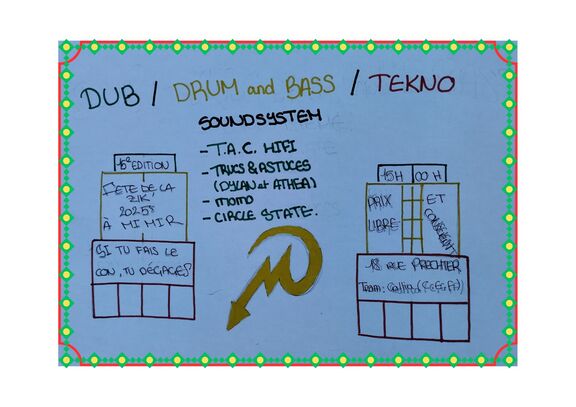 DUB / DRUM and BASS / TEKNO
SOUNDSYSTEM
- T.A.C. HIFI
- TRUCS & ASTUCES
(DYLAN et ATHEA)
- MOMO
- CIRCLE STATE.
15e EDITION
FETE DE LA
ZIK
2025
À MIMIR
SI TU FAIS LE
CON, TU DÉGAGES
15H 00H
PRIX
LIBRE
ET
CONSCIENT
18 RUE PRECHTER
Team: